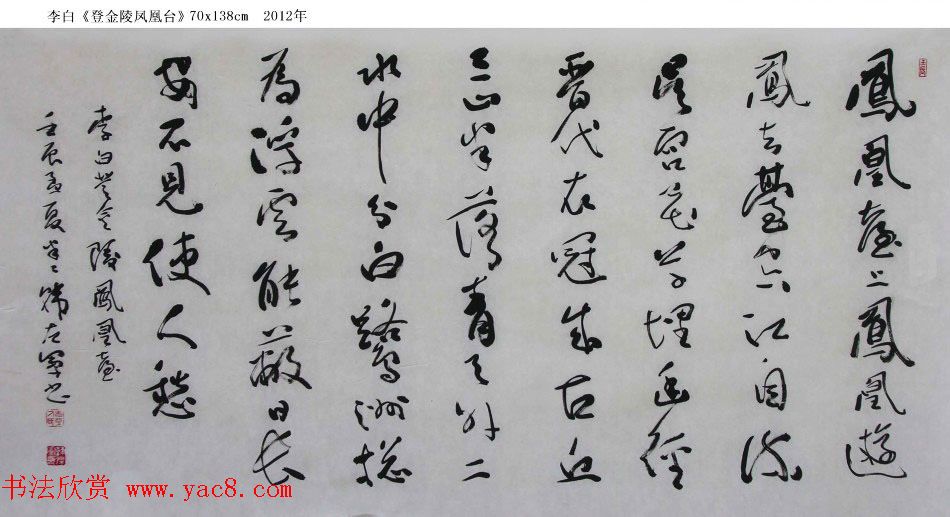 李白《登金陵凤凰台》70x138cm 2012年
鳳凰臺上鳳凰遊
鳳去臺空江自流
吳宮花草埋幽徑
晉代衣冠成古丘
三山半落青天外二
水中分白鷺洲總
為浮雲能蔽日長
安不見使人愁
李白登金陵鳳凰臺
壬辰孟夏左軍书
书法欣赏 www.yac8.com